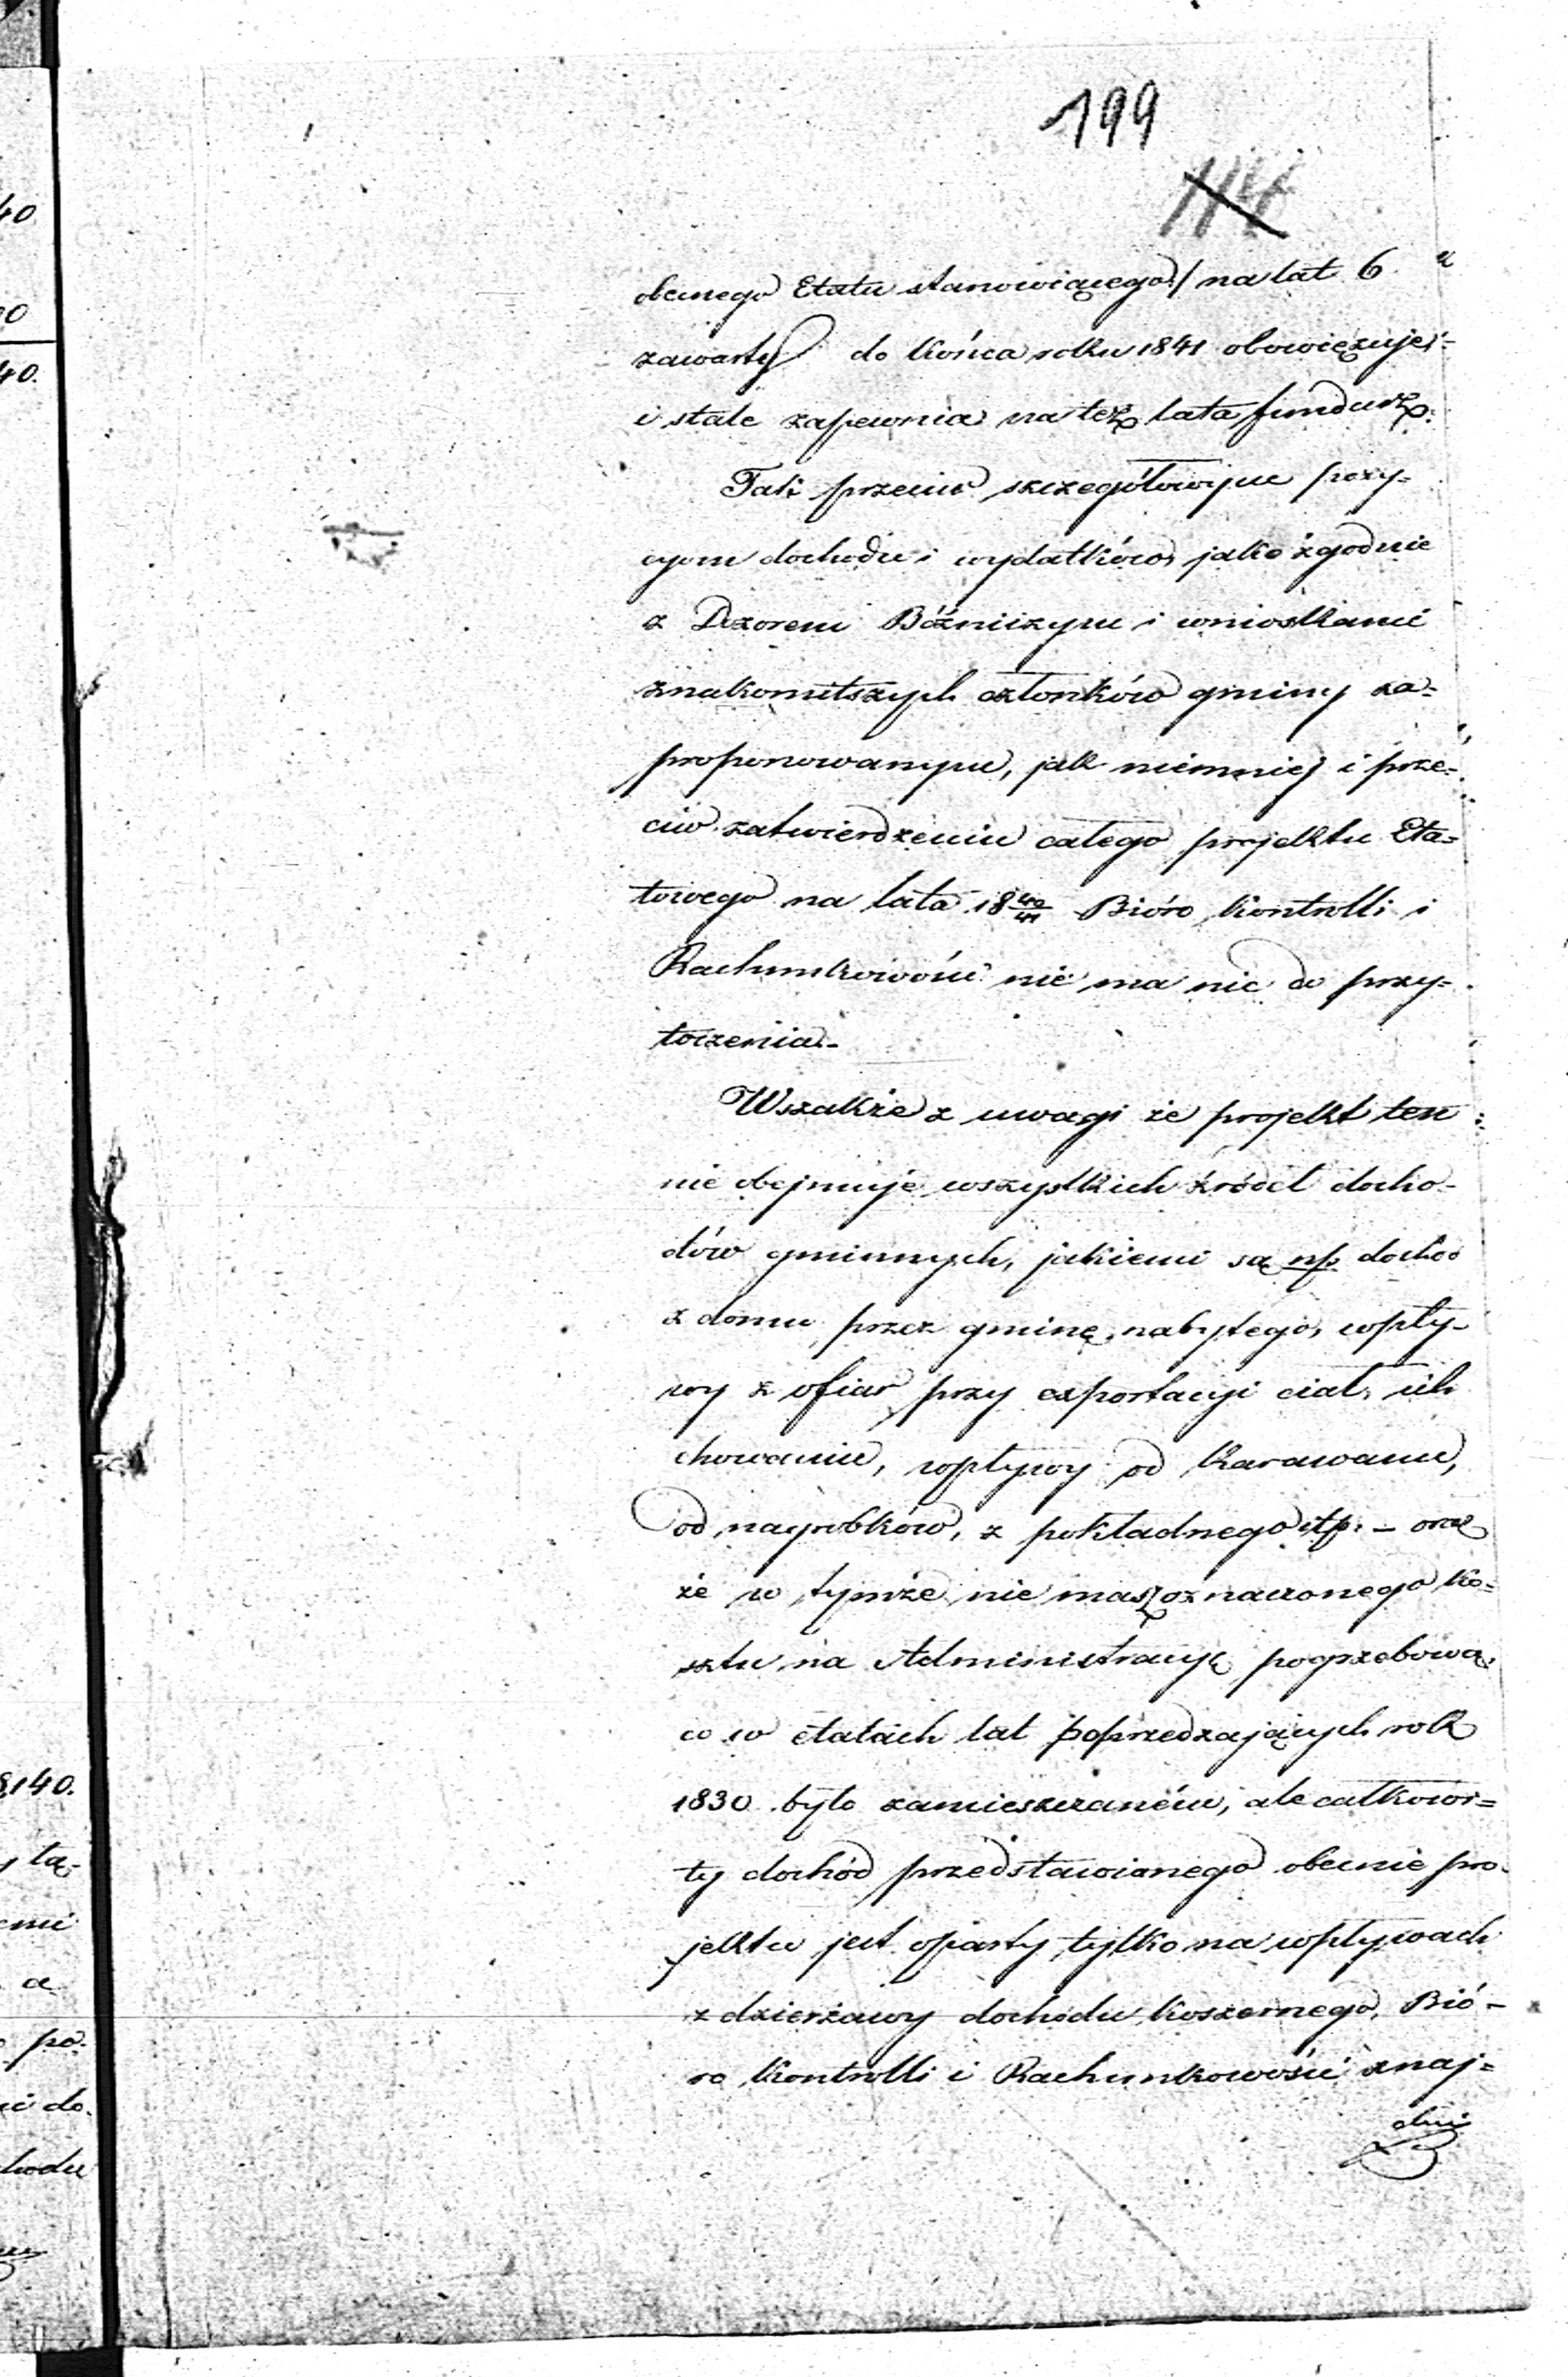 199
obecnego Etatu stanowiącego/ na lat 6
zawarty do końca roku 1841 obowięzuje
i stale zapewnia na też lata fundusz.
Tak przeciw szczegółowym pozy-
cyom dochodu i wydatków, jako zgodnie
z Dozorem Bóżniczym i wnioskami
znakomitszych członków gminy za-
proponowanym, jak niemniej i prze-
ciw zatwierdzeniu całego projektu Eta-
towego na lata 18 40/41 Bióro Kontrolli i
Rachunkowości nie ma nic do przy-
toczenia.-
Wszakże z uwagi że projekt ten
nie obejmuje wszystkich źródeł docho-
dów gminnych, jakiemi są np. dochód
z domu przez gminę nabytego, wpły-
wy z ofiar przy exportacyi ciał, ich
chowaniu, wpływy od Karawanu,
od nagrobków, z pokładnego itp. - oraz
że w tymże nie masz oznaczonego ko-
sztu na Administracyę pogrzebową,
co w etatach lat poprzedzających rok
1830 było zamieszczaném, ale całkowi-
ty dochód przedstawianego obecnie pro-
jektu jest oparty tylko na wpływach
z dzierżawy dochodu koszernego, Bió-
ro Kontrolli i Rachunkowości znaj-
duje
40
0
40.
8,140.
tą-
emi
a
po-
ić do
hodu